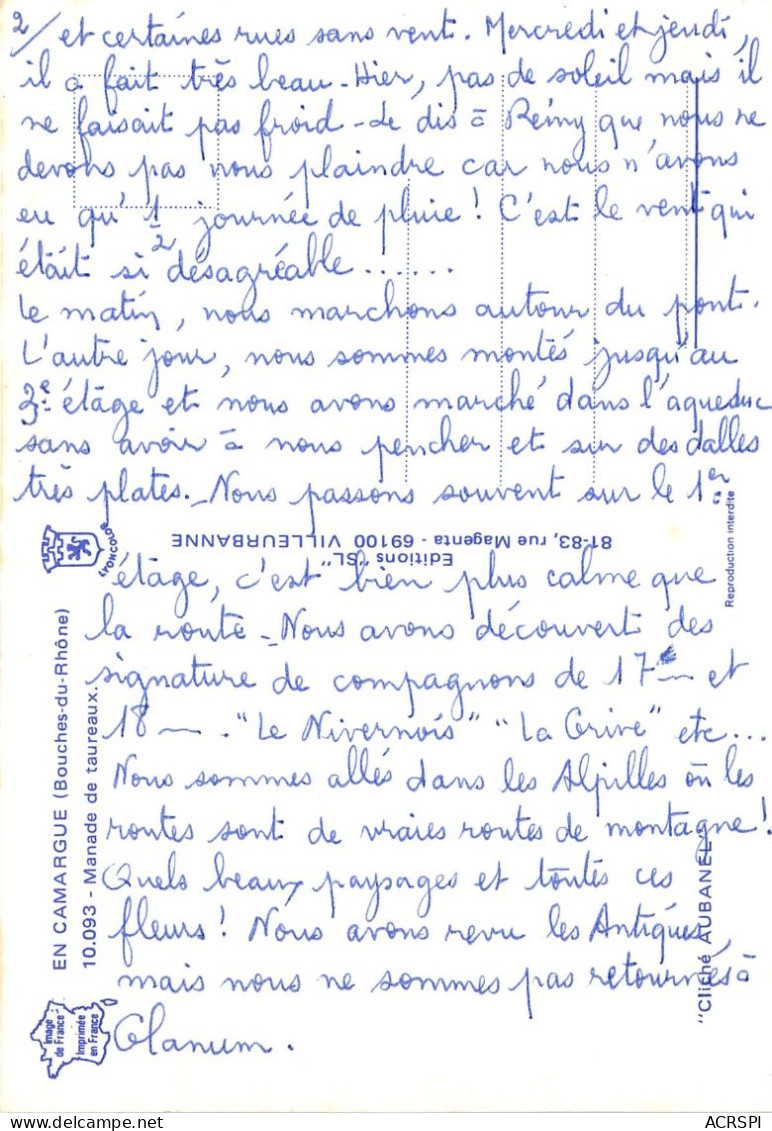 2/ et certaines rues sans vent. Mercredi et jeudi,
il a fait très beau - Hier, pas de soleil mais il
ne faisait pas froid - Je dis à Rémy que nous ne
devons pas nous plaindre car nous n'avons
eu qu' 1/2 journée de pluie ! C'est le vent qui
était si désagréable.......
Le matin, nous marchons autour du pont.
L'autre jour, nous sommes montés jusqu'au
3e étage et nous avons marché dans l'aqueduc
sans avoir à nous pencher et sur des dalles
très plates. - Nous passons souvent sur le 1er
étage, c'est bien plus calme que
la route - Nous avons découvert des
signature de compagnons de 17 et
18 . "Le Nivernois" "La Grive" etc...
Nous sommes allés dans les Alpilles où les
routes sont de vraies routes de montagne !
Quels beaux paysages et toutes ces
fleurs ! Nous avons revu les Antiques,
mais nous ne sommes pas retournés à
Glanum.
Editions "SL"
81-83, rue Magenta - 69100 VILLEURBANNE
LYONCOLOR
Reproduction interdite
EN CAMARGUE (Bouches-du-Rhône)
10.093 - Manade de taureaux.
"Cliché AUBANEL"
Image
de France
Imprimée
en France
ACRSPI